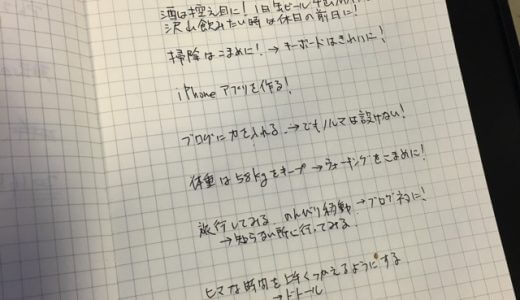 酒は控え目に！1日生ビール
沢山飲みたい時は休日の前日に！
掃除はこまめに！→キーボードはきれいに！
iPhoneアプリを作る！
ブログに力を入れる→でもノルマは設けない！
体重は58kgをキープ→ウォーキングをこまめに！
旅行してみる のんびり移動→ブログネタに！
→知らない所に行ってみる
ヒマな時間を上手く使えるようにする
→ドトール